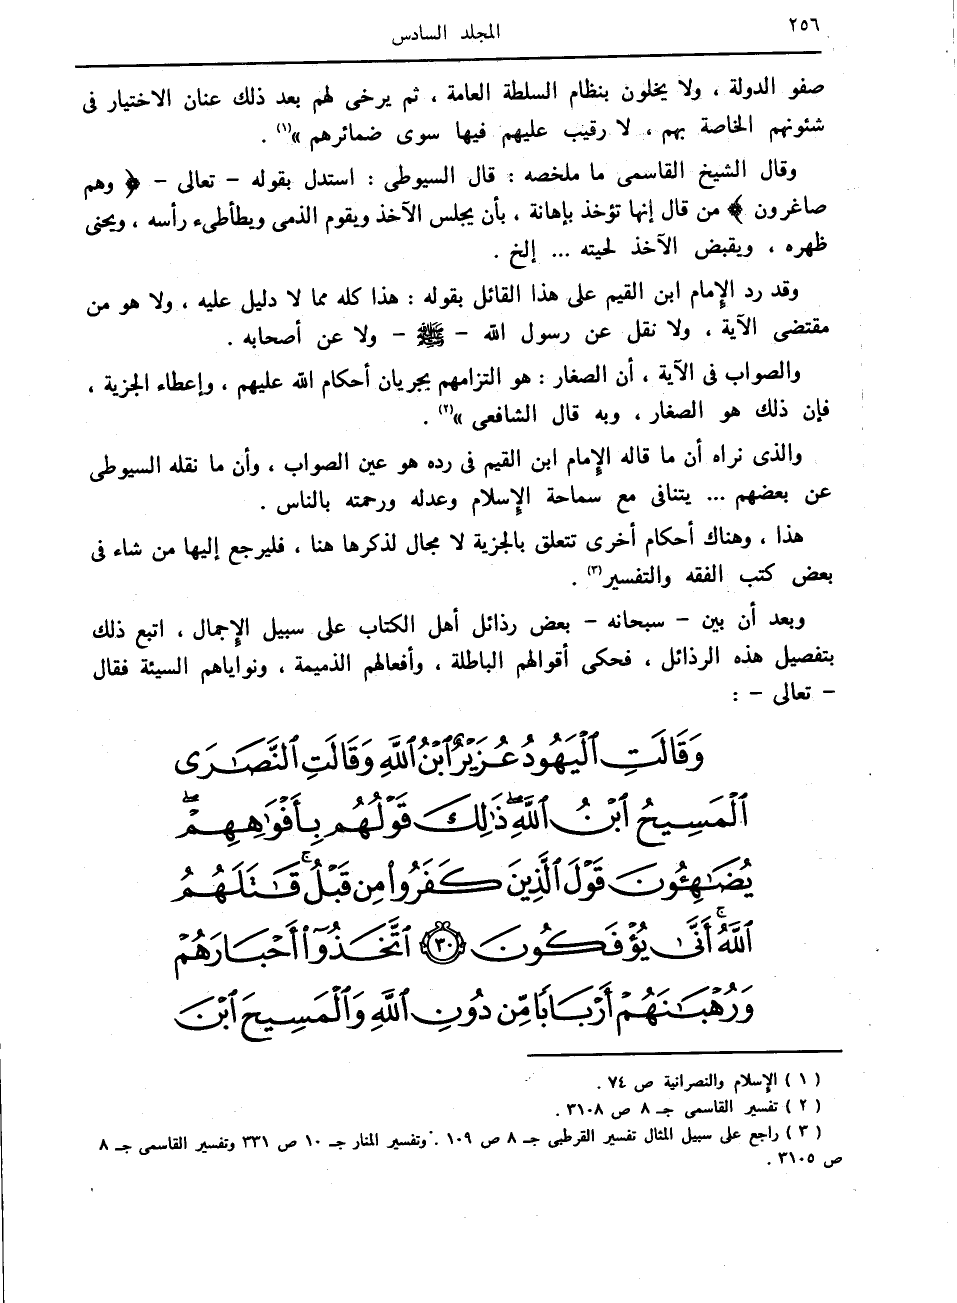 ٢٥٦
المجلد السادس
صفو الدولة ، ولا يخلون بنظام السلطة العامة ، ثم يرخى لهم بعد ذلك عنان الاختيار فى
شئونهم الخاصة بهم ، لا رقيب عليهم فيها سوى ضمائرهم »(١) .
وقال الشيخ القاسمى ما ملخصه : قال السيوطى : استدل بقوله – تعالى – ﴿ وهم
صاغرون ﴾ من قال إنها تؤخذ بإهانة ، بأن يجلس الآخذ ويقوم الذمى ويطأطىء رأسه ، ويحنى
ظهره ، ويقبض الآخذ لحيته ... إلخ .
وقد رد الإمام ابن القيم على هذا القائل بقوله : هذا كله مما لا دليل عليه ، ولا هو من
مقتضى الآية ، ولا نقل عن رسول الله – ﷺ – ولا عن أصحابه .
والصواب فى الآية ، أن الصغار : هو التزامهم بجريان أحكام الله عليهم ، وإعطاء الجزية ،
فإن ذلك هو الصغار ، وبه قال الشافعى »(٢) .
والذى نراه أن ما قاله الإمام ابن القيم فى رده هو عين الصواب ، وأن ما نقله السيوطى
عن بعضهم ... يتنافى مع سماحة الإسلام وعدله ورحمته بالناس .
هذا ، وهناك أحكام أخرى تتعلق بالجزية لا مجال لذكرها هنا ، فليرجع إليها من شاء فى
بعض كتب الفقه والتفسير(٣) .
وبعد أن بين – سبحانه – بعض رذائل أهل الكتاب على سبيل الإجمال ، اتبع ذلك
بتفصيل هذه الرذائل ، فحكى أقوالهم الباطلة ، وأفعالهم الذميمة ، ونواياهم السيئة فقال
– تعالى – :
وَقَالَتِ ٱلْيَهُودُ عُزَيْرٌ ٱبْنُ ٱللَّهِ وَقَالَتِ ٱلنَّصَٰرَى
ٱلْمَسِيحُ ٱبْنُ ٱللَّهِ ۖ ذَٰلِكَ قَوْلُهُم بِأَفْوَٰهِهِمْ ۖ
يُضَٰهِـُٔونَ قَوْلَ ٱلَّذِينَ كَفَرُوا۟ مِن قَبْلُ ۚ قَٰتَلَهُمُ
ٱللَّهُ ۚ أَنَّىٰ يُؤْفَكُونَ ٣٠ ٱتَّخَذُوٓا۟ أَحْبَارَهُمْ
وَرُهْبَٰنَهُمْ أَرْبَابًا مِّن دُونِ ٱللَّهِ وَٱلْمَسِيحَ ٱبْنَ
( ١ ) الإسلام والنصرانية ص ٧٤ .
( ٢ ) تفسير القاسمى جـ ٨ ص ٣١٠٨ .
( ٣ ) راجع على سبيل المثال تفسير القرطبى جـ ٨ ص ١٠٩ . وتفسير المنار جـ ١٠ ص ٣٣١ وتفسير القاسمى جـ ٨
ص ٣١٠٥ .